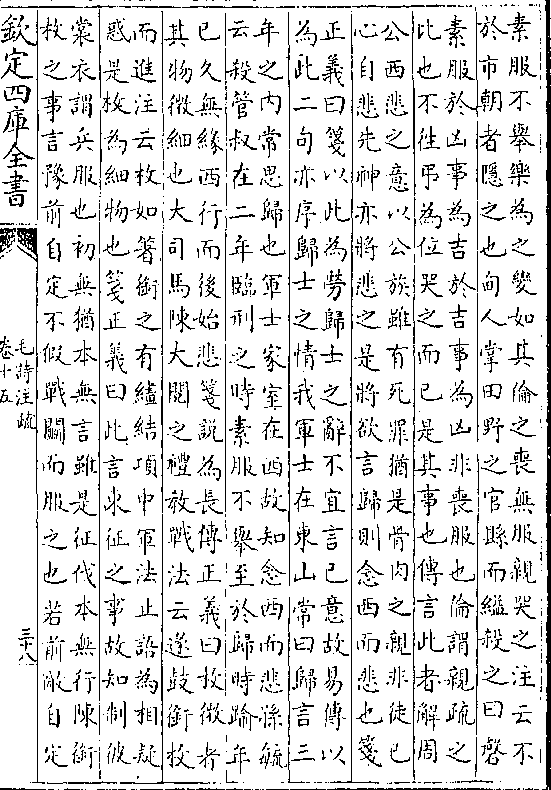 素服不舉樂為之變如其倫之喪無服親哭之注云不
於市朝者隱之也甸人掌田野之官縣而縊殺之曰磬
素服於凶事為吉於吉事為凶非喪服也倫謂親疏之
比也不往弔為位哭之而已是其事也傳言此者解周
公西悲之意以公族雖有死罪猶是骨肉之親非徒已
心自悲先神亦將悲之是將欲言歸則念西而悲也箋
正義曰箋以此為勞歸士之辭不宜言已意故易傳以
為此二句亦序歸士之情我軍士在東山常曰歸言三
年之內常思歸也軍士家室在西故知念西而悲孫毓
云殺管叔在二年臨刑之時素服不舉至於歸時踰年
已久無緣西行而後始悲箋說為長傳正義曰枚微者
其物微細也大司馬陳大閱之禮教戰法云遂鼓銜枚
而進注云枚如箸銜之有繣結項中軍法止語為相疑
惑是枚為細物也箋正義曰此言東征之事故知制彼
裳衣謂兵服也初無猶本無言雖是征伐本無行陳銜
枚之事言豫前自定不假戰鬭而服之也若前敵自定
欽定四庫全書
毛詩注疏
卷十五
三十八